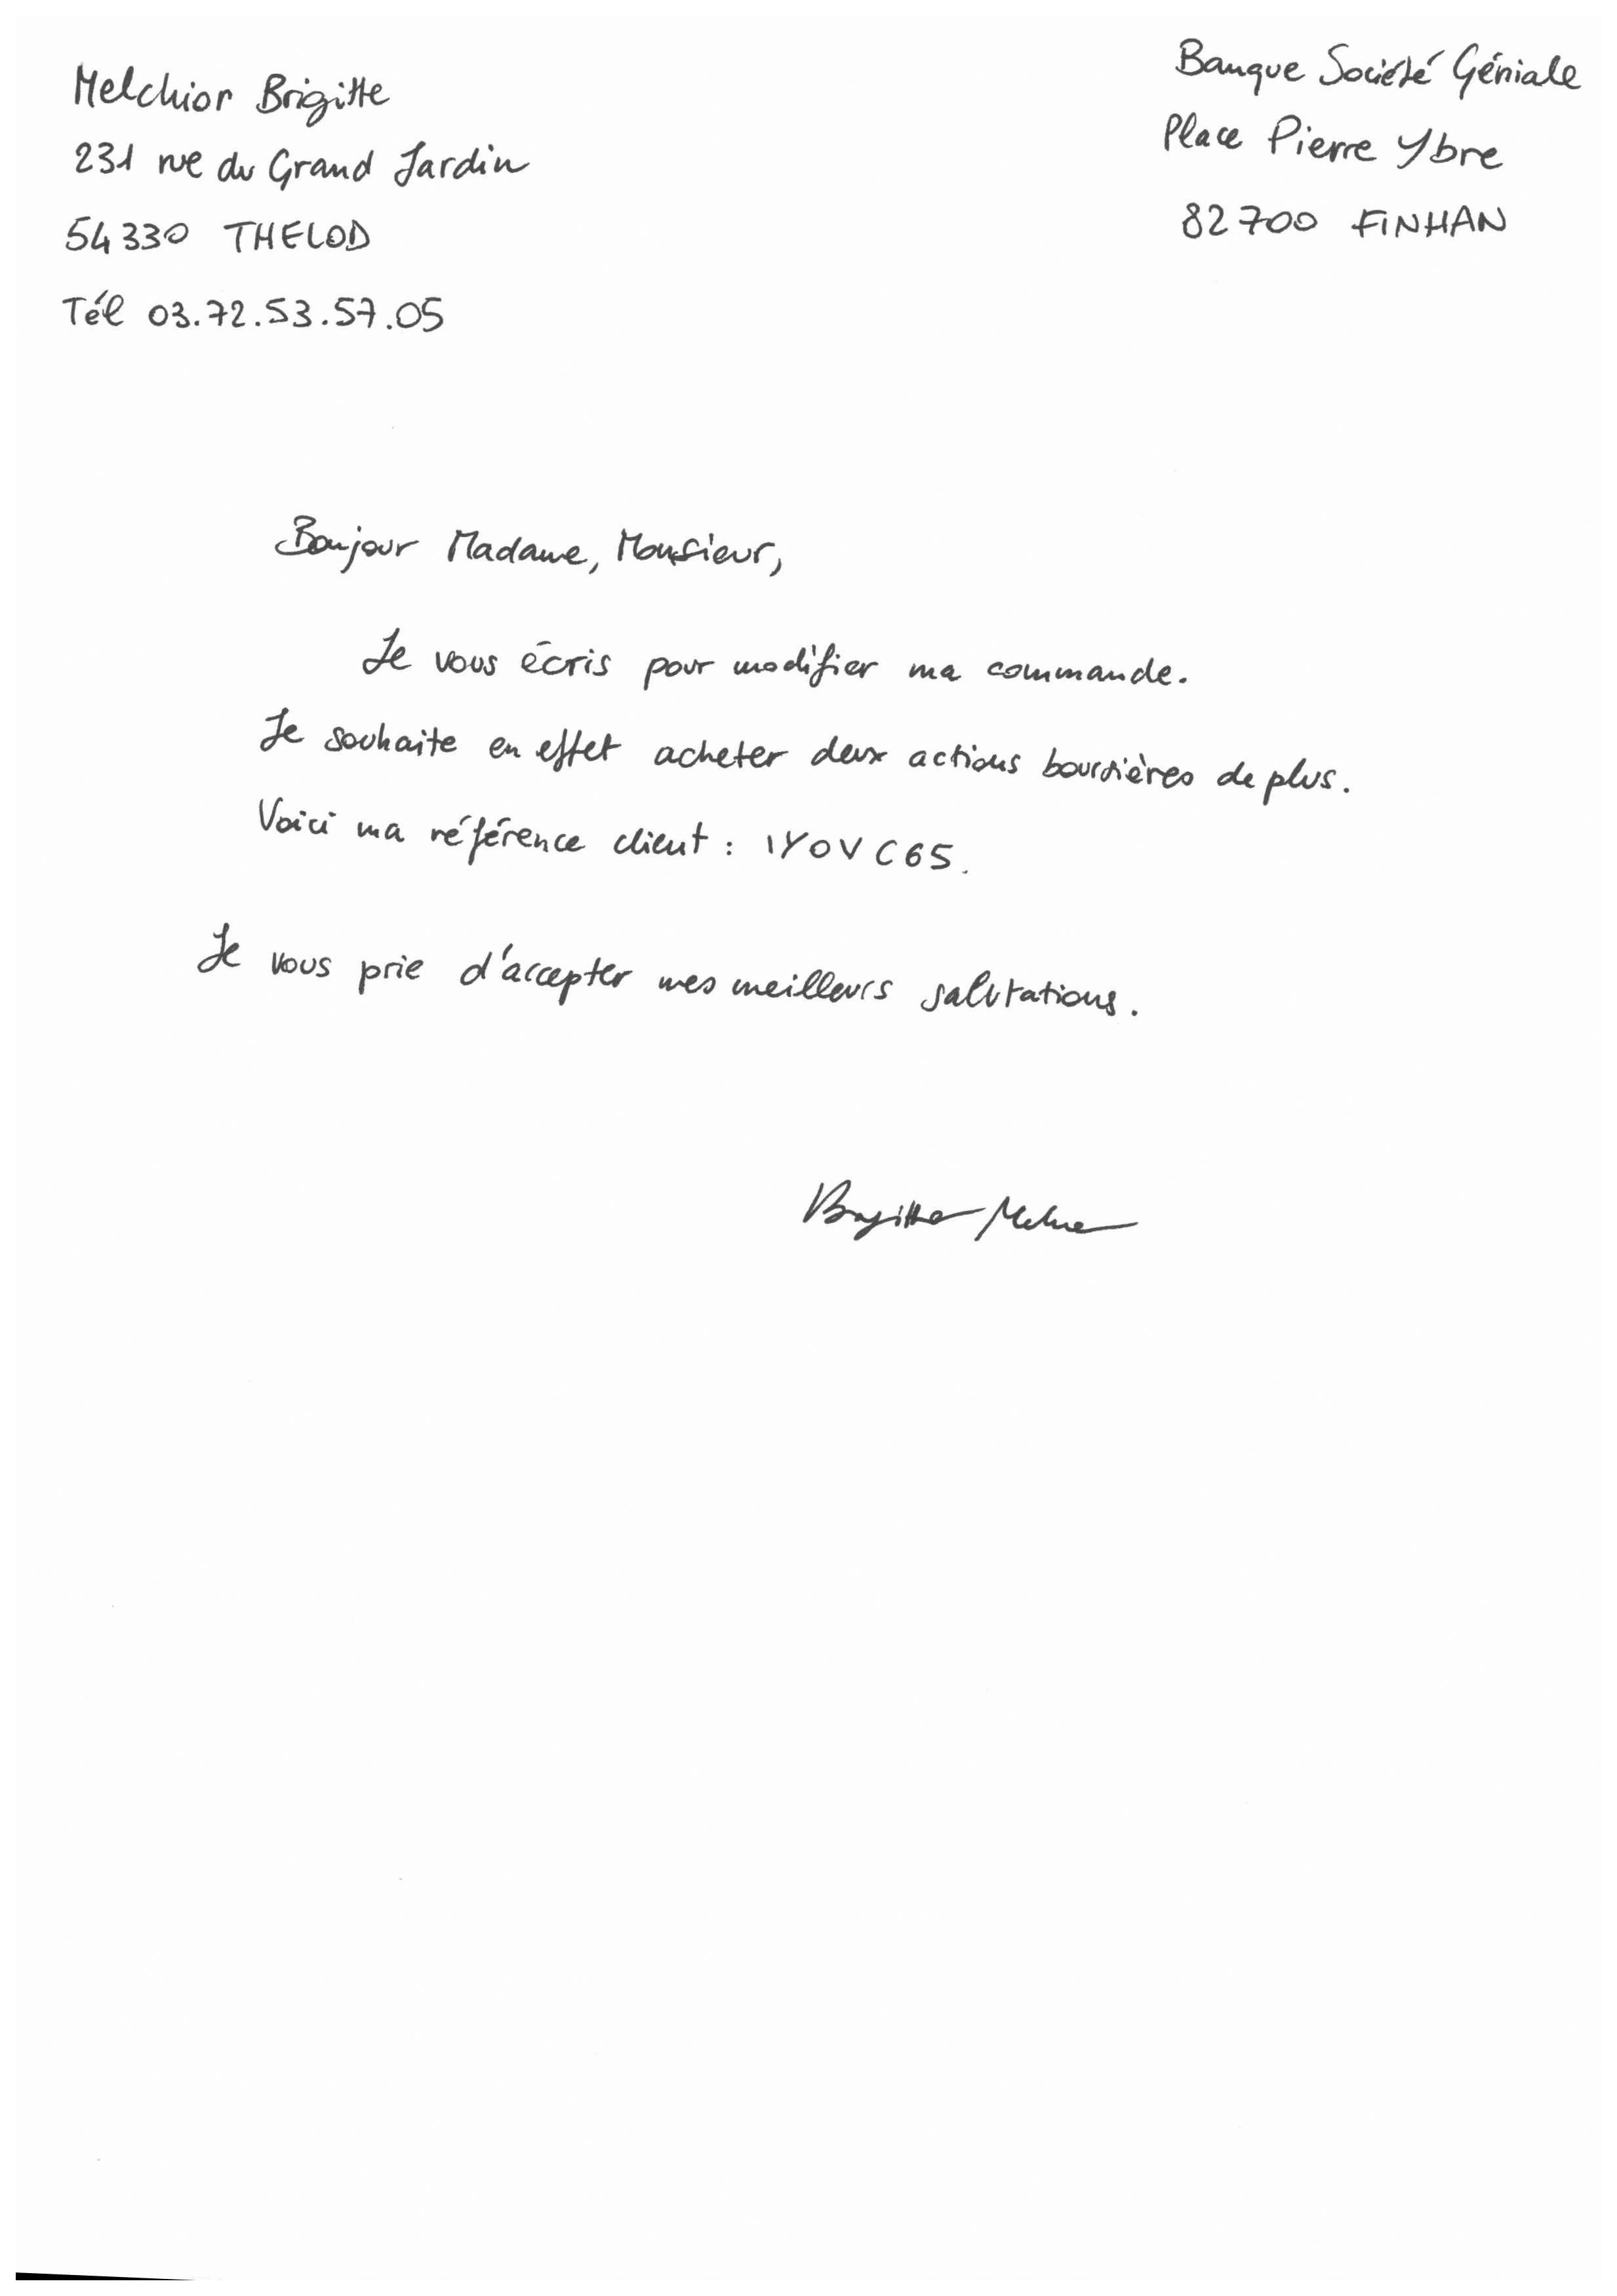 Melchior Brigitte
231 rue du Grand Jardin
54330 THELOD
Tél 03.72.53.57.05
Banque Société Géniale
Place Pierre Ybre
82700 FINHAN
Bonjour Madame, Monsieur,
Je vous écris pour modifier ma commande.
Je souhaite en effet acheter deux actions boursières de plus.
Voici ma référence client : IYOVC65.
Je vous prie d'accepter mes meilleurs salutations.
Brigitte